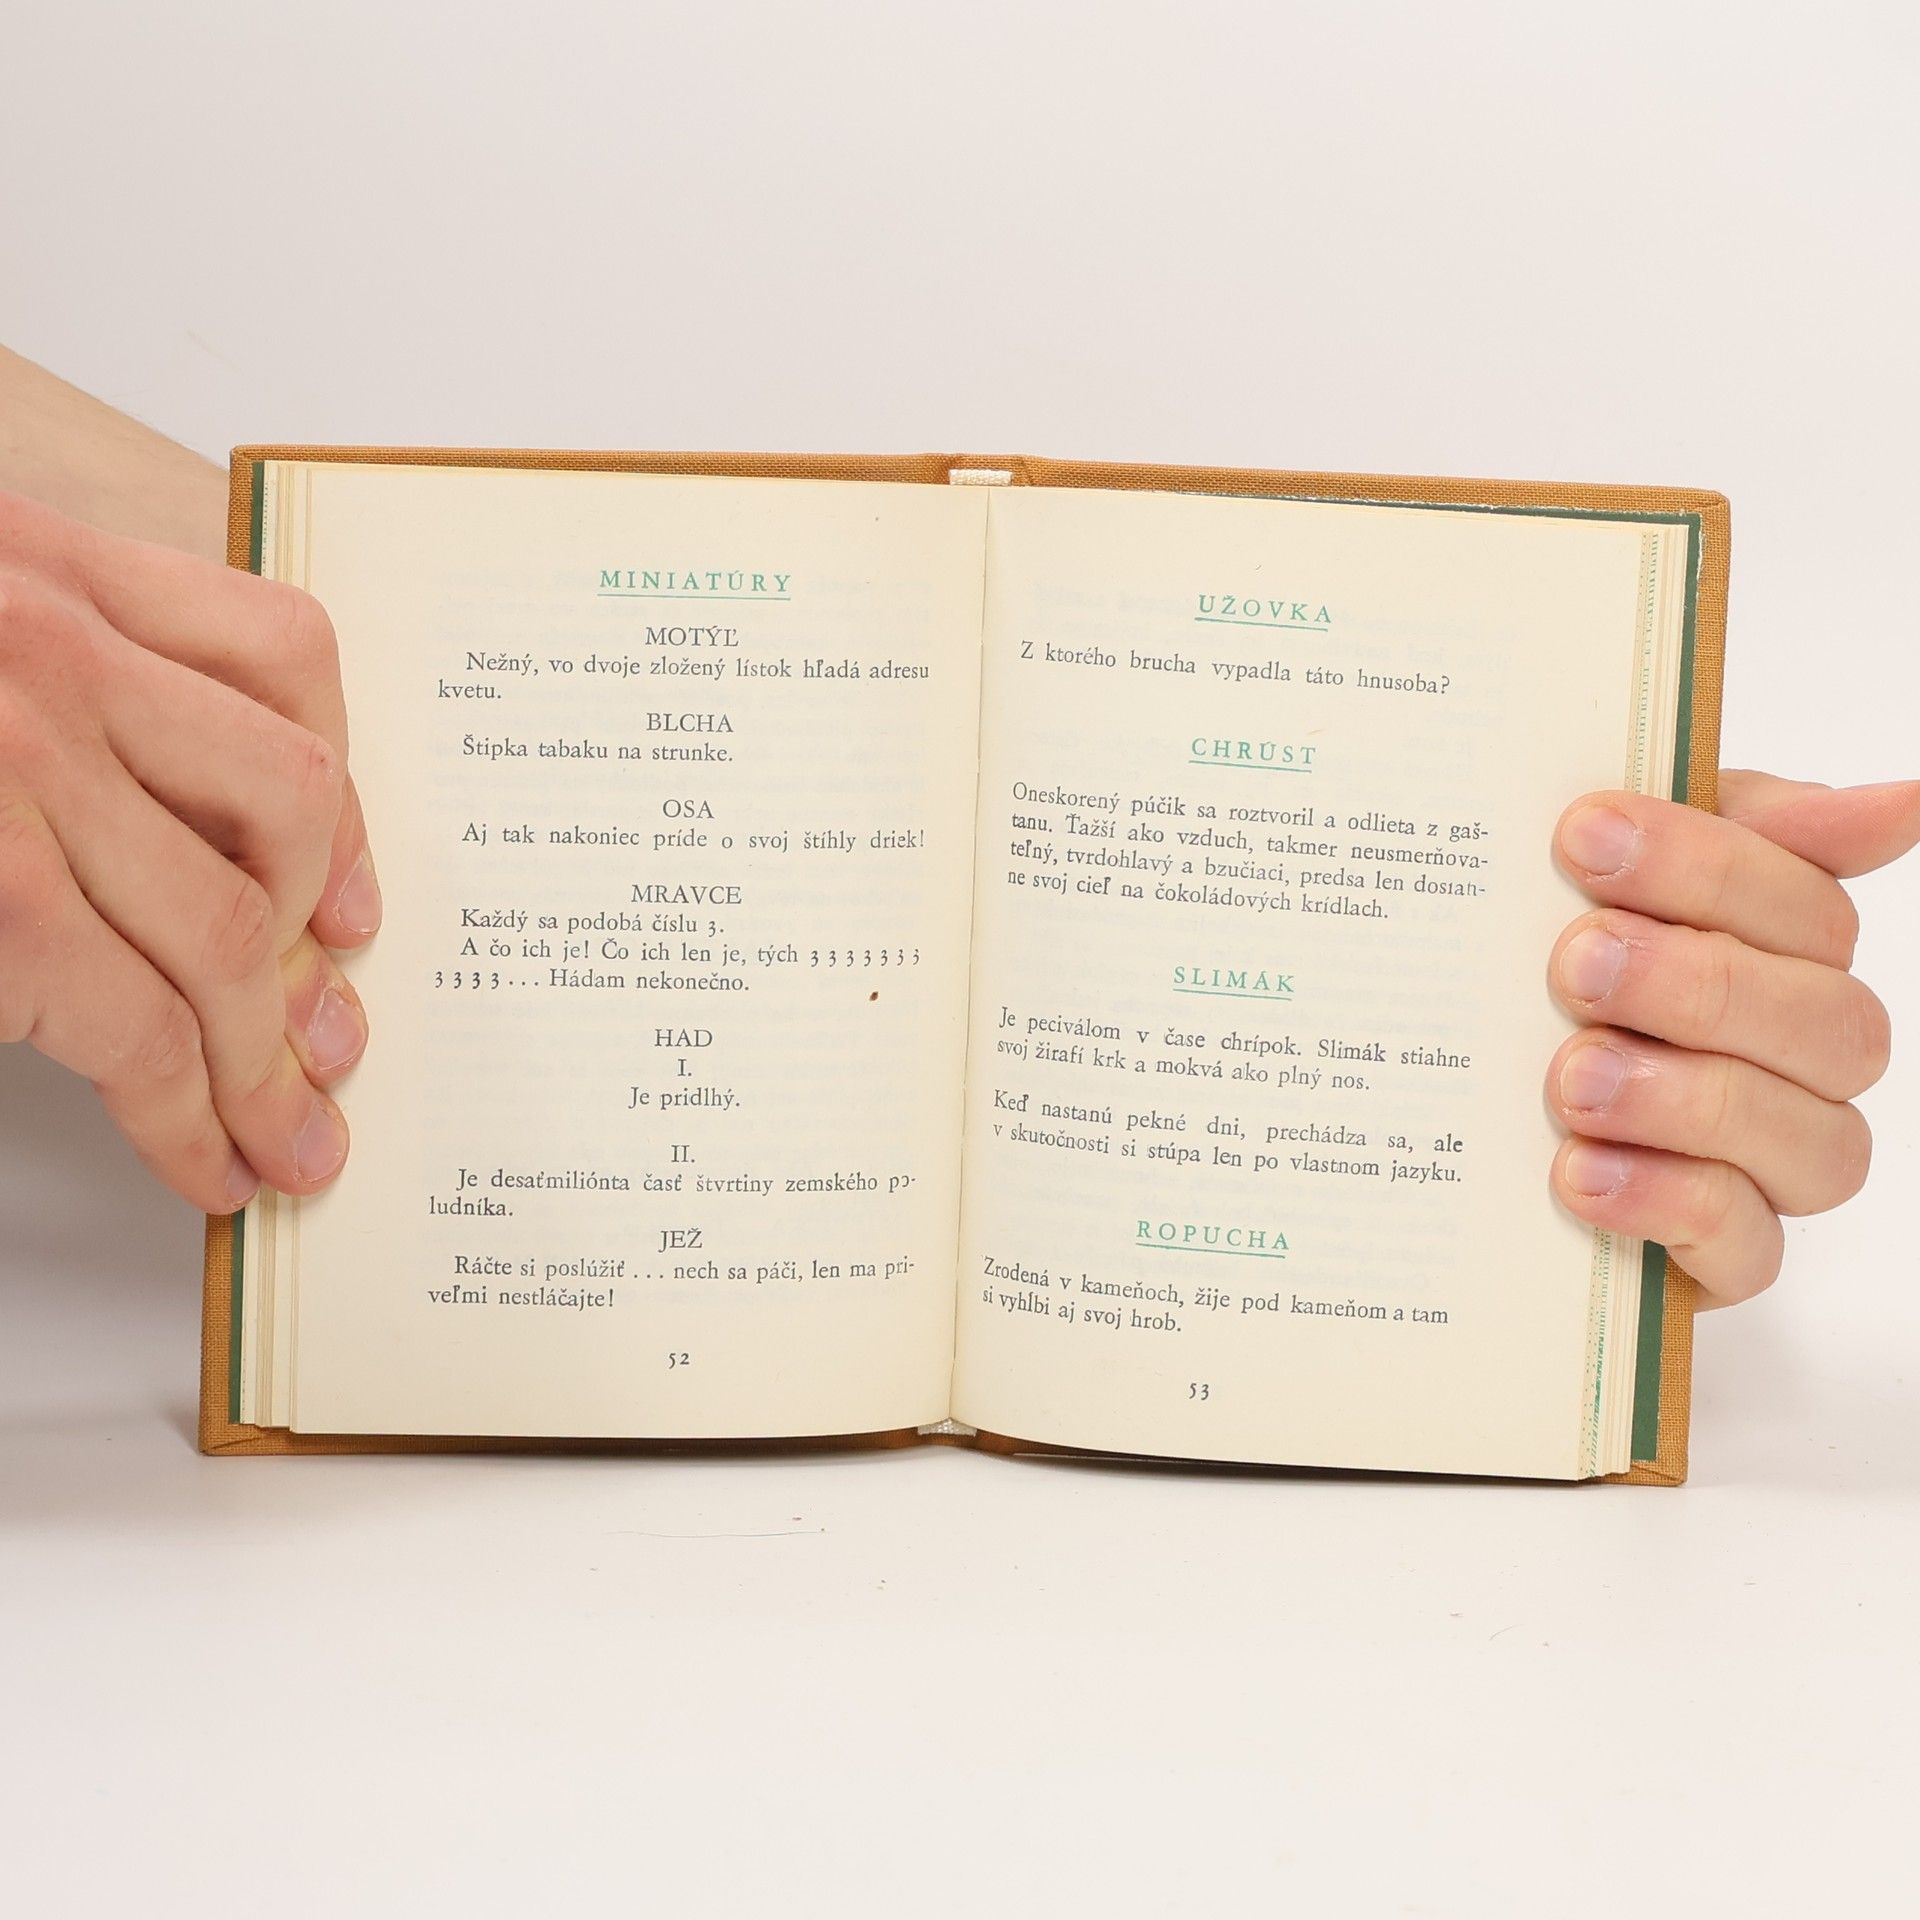 MINIATÚRY
MOTÝĽ
Nežný, vo dvoje zložený lístok hľadá adresu
kvetu.
BLCHA
Štipka tabaku na strunke.
OSA
Aj tak nakoniec príde o svoj štíhly driek!
MRAVCE
Každý sa podobá číslu 3.
A čo ich je! Čo ich len je, tých 3 3 3 3 3 3 3
3 3 3 3 ... Hádam nekonečno.
HAD
I.
Je pridlhý.
II.
Je desaťmiliónta časť štvrtiny zemského po-
ludníka.
JEŽ
Ráčte si poslúžiť ... nech sa páči, len ma pri-
veľmi nestláčajte!
52
UŽOVKA
Z ktorého brucha vypadla táto hnusoba?
CHRÚST
Oneskorený púčik sa roztvoril a odlieta z gaš-
tanu. Ťažší ako vzduch, takmer neusmerňova-
teľný, tvrdohlavý a bzučiaci, predsa len dosiah-
ne svoj cieľ na čokoládových krídlach.
SLIMÁK
Je peciválom v čase chrípok. Slimák stiahne
svoj žirafí krk a mokvá ako plný nos.
Keď nastanú pekné dni, prechádza sa, ale
v skutočnosti si stúpa len po vlastnom jazyku.
ROPUCHA
Zrodená v kameňoch, žije pod kameňom a tam
si vyhĺbi aj svoj hrob.
53